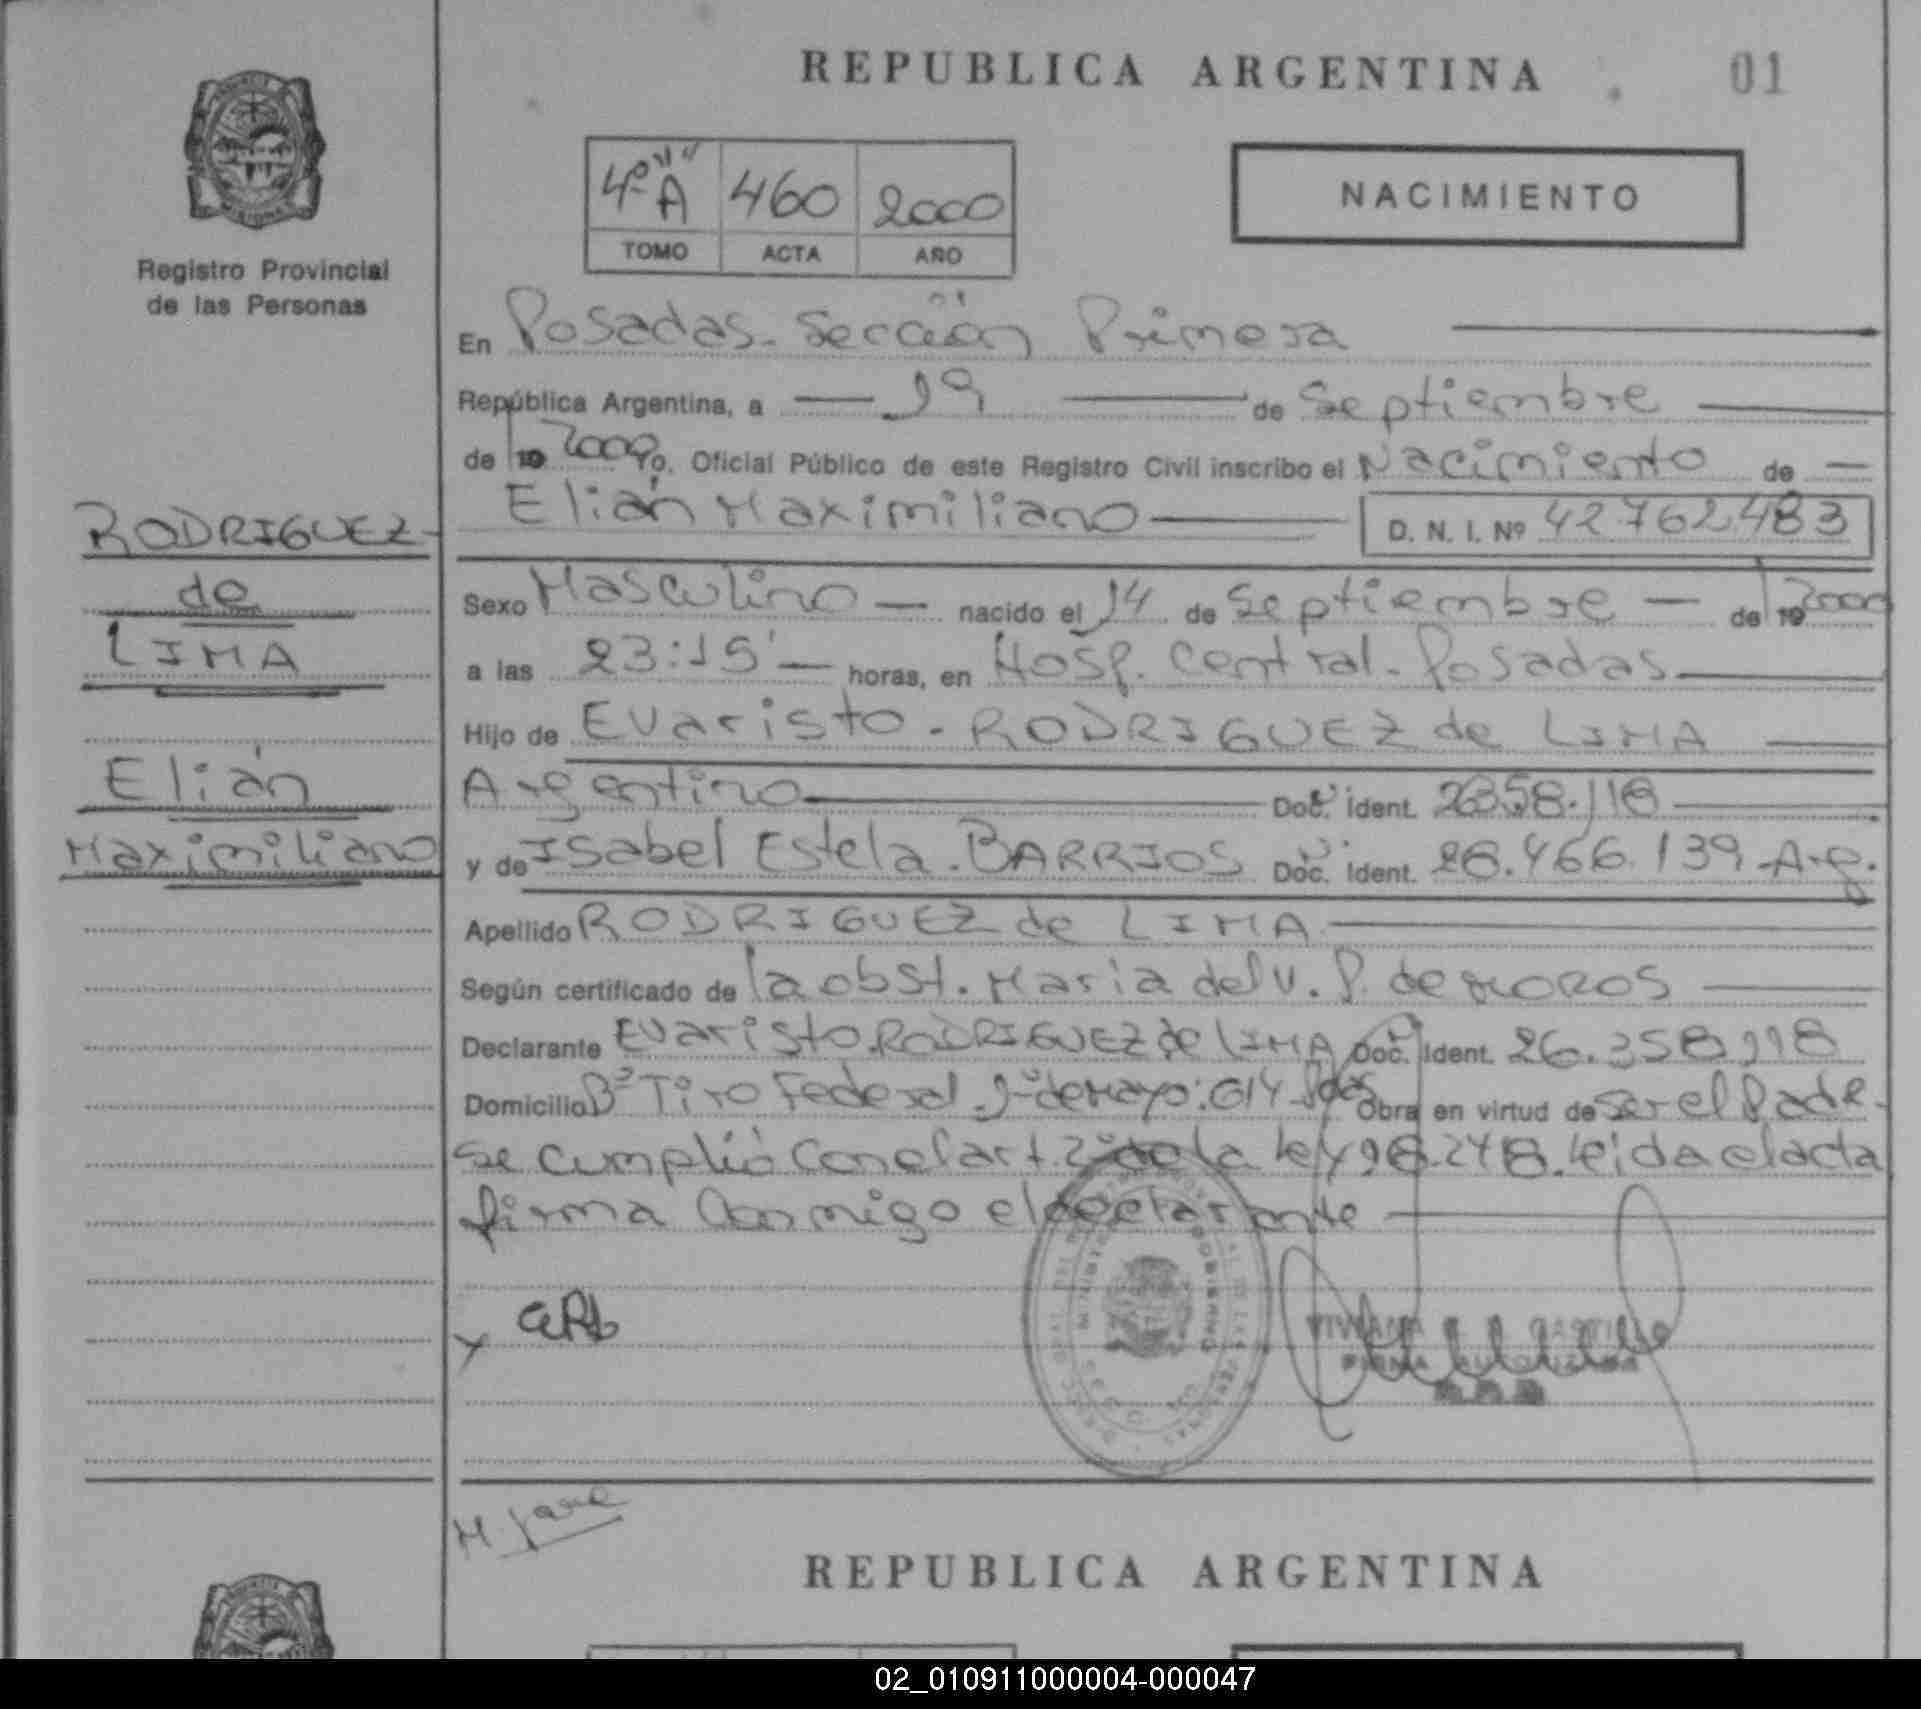 REPUBLICA ARGENTINA
01
4º "A" 460 2000
TOMO ACTA AÑO
NACIMIENTO
Registro Provincial
de las Personas
En Posadas. Sección Primera
República Argentina, a 19 de Septiembre
de 19 2000 Yo, Oficial Público de este Registro Civil inscribo el Nacimiento de
Elián Maximiliano D. N. I. Nº 42.762.483
RODRIGUEZ
de
LIMA
Elián
Maximiliano
Sexo Masculino nacido el 14 de Septiembre de 19 2000
a las 23:15' horas, en Hosp. Central. Posadas
Hijo de Evaristo. RODRIGUEZ de LIMA
Argentino Doc. Ident.
y de Isabel Estela. BARRIOS Doc. Ident. 26.466.139 Arg.
Apellido RODRIGUEZ de LIMA
Según certificado de la obst. Maria del V. P. de
Declarante Evaristo RODRIGUEZ de LIMA Doc. Ident. 26.358.118
Domicilio Bº Tiro Federal 1º de Mayo: 614 Pdas Obra en virtud de ser el Padre.
Se cumplió con el art 2º de la ley 18.248. leida el acta
firma conmigo el declarante
REPUBLICA ARGENTINA
02_010911000004-000047